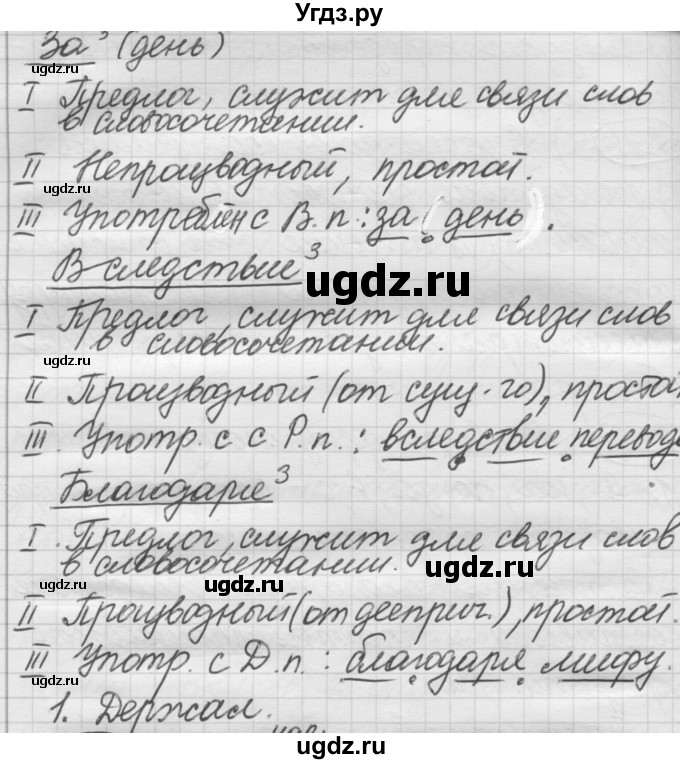 Угдз.ру
За³ (день)
I Предлог, служит для связи слов
в словосочетании.
II Непроизводный, простой.
III Употреблён с В.п.: за (день).
Вследствие³
I Предлог, служит для связи слов
в словосочетании.
II Производный (от сущ-го), простой
III. Употр. с с Р.п.: вследствие перевода
Благодаря³
I. Предлог, служит для связи слов
в словосочетании.
II Производный (от дееприч.), простой.
III Употр. с Д.п.: благодаря мифу.
1. Держал.
ugdz.ru
ugdz.ru
ugdz.ru
ugdz.ru
ugdz.ru
ugdz.ru
ugdz.ru
ugdz.ru
ugdz.ru
ugdz.ru
ugdz.ru
ugdz.ru